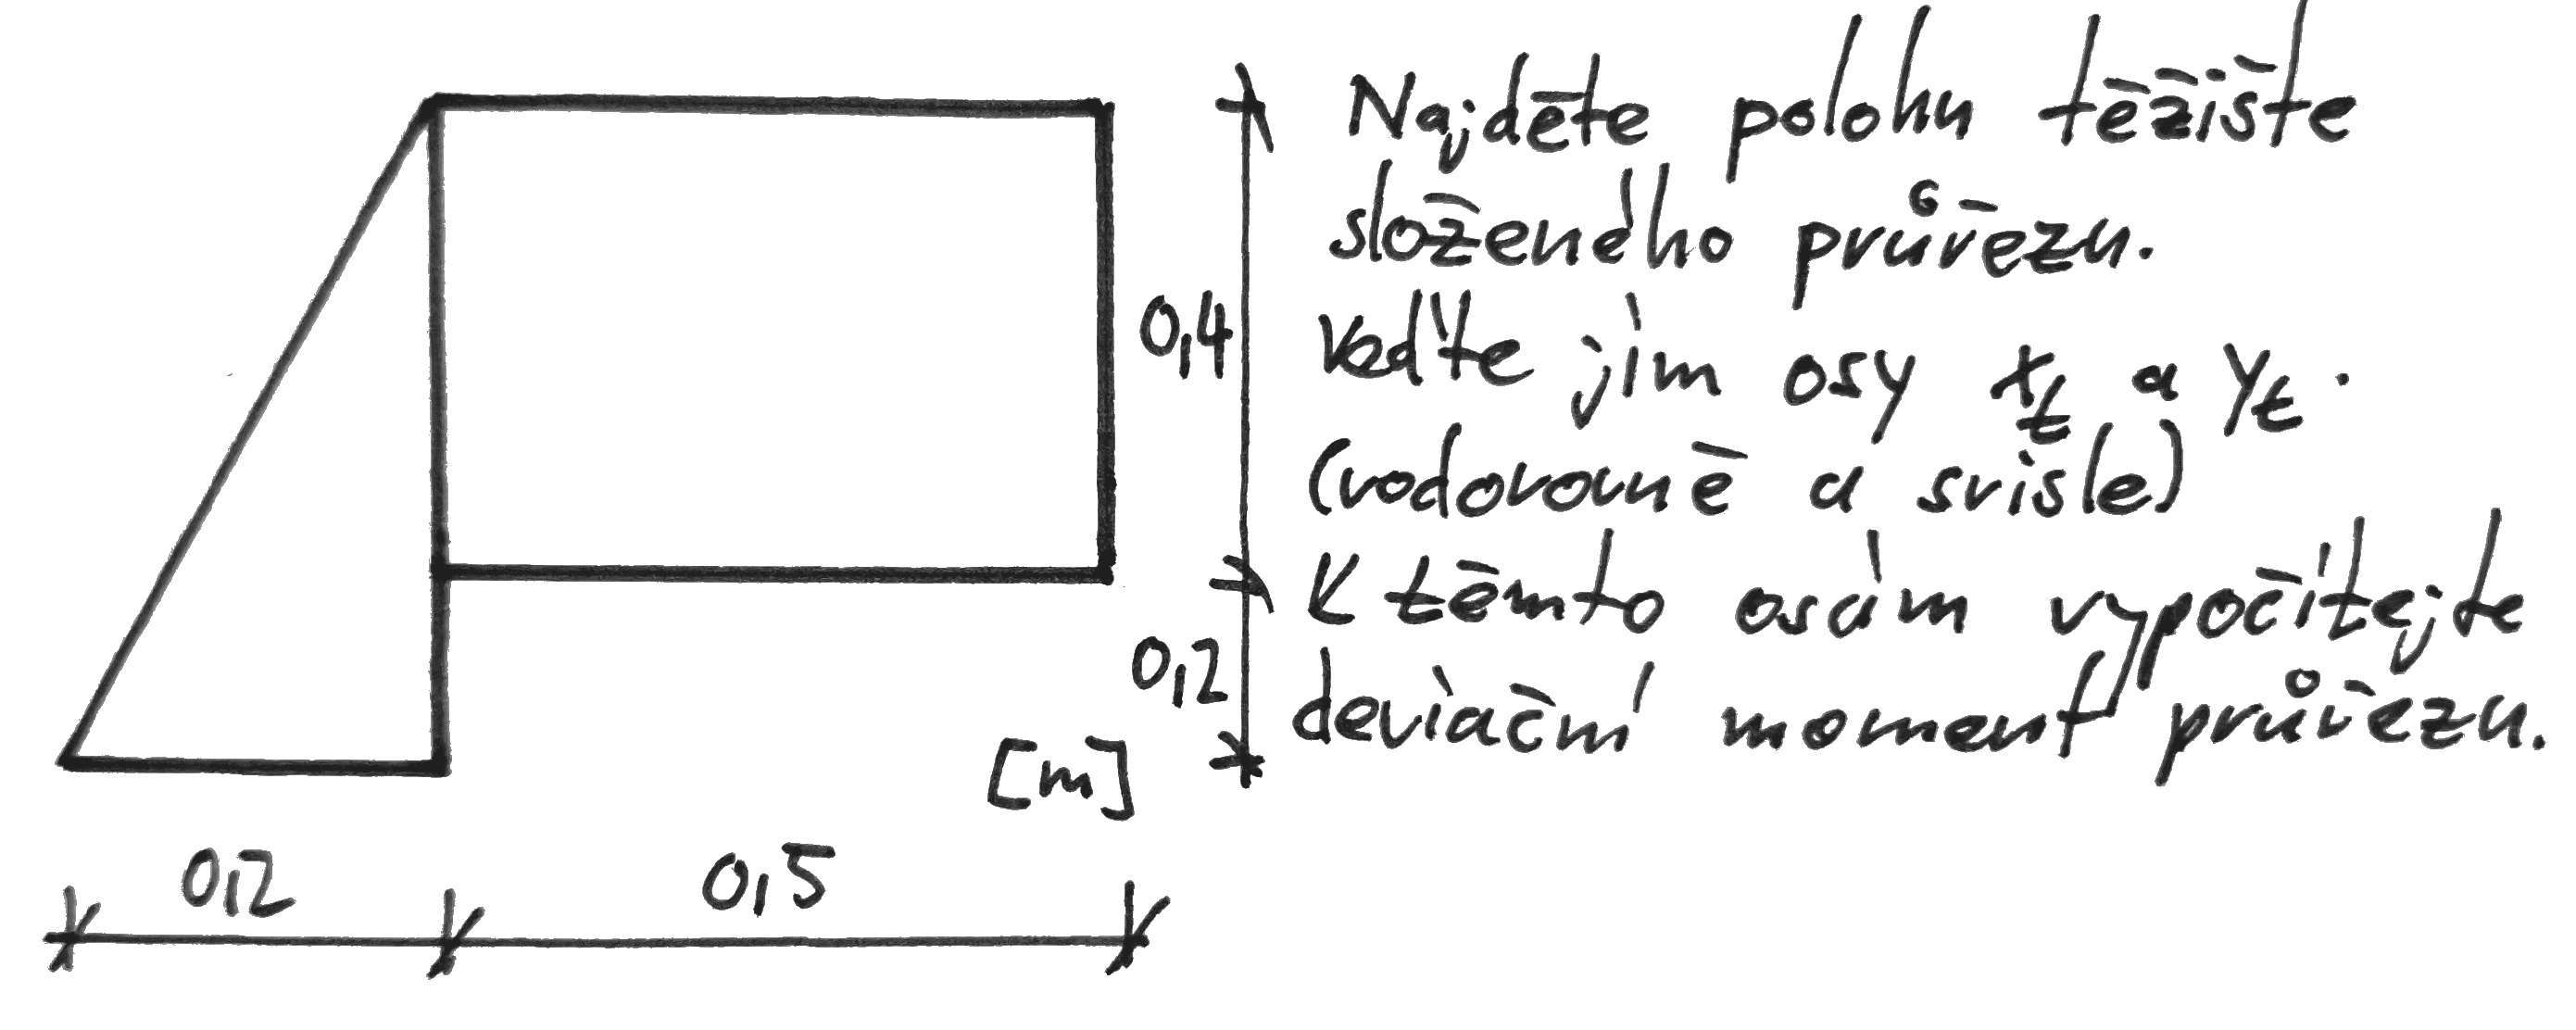 Najděte polohu těžiště
složeného průřezu.
Veďte jím osy xt a yt.
(vodorovně a svisle)
K těmto osám vypočítejte
deviační moment průřezu.
0,4
0,2
[m]
0,2
0,5